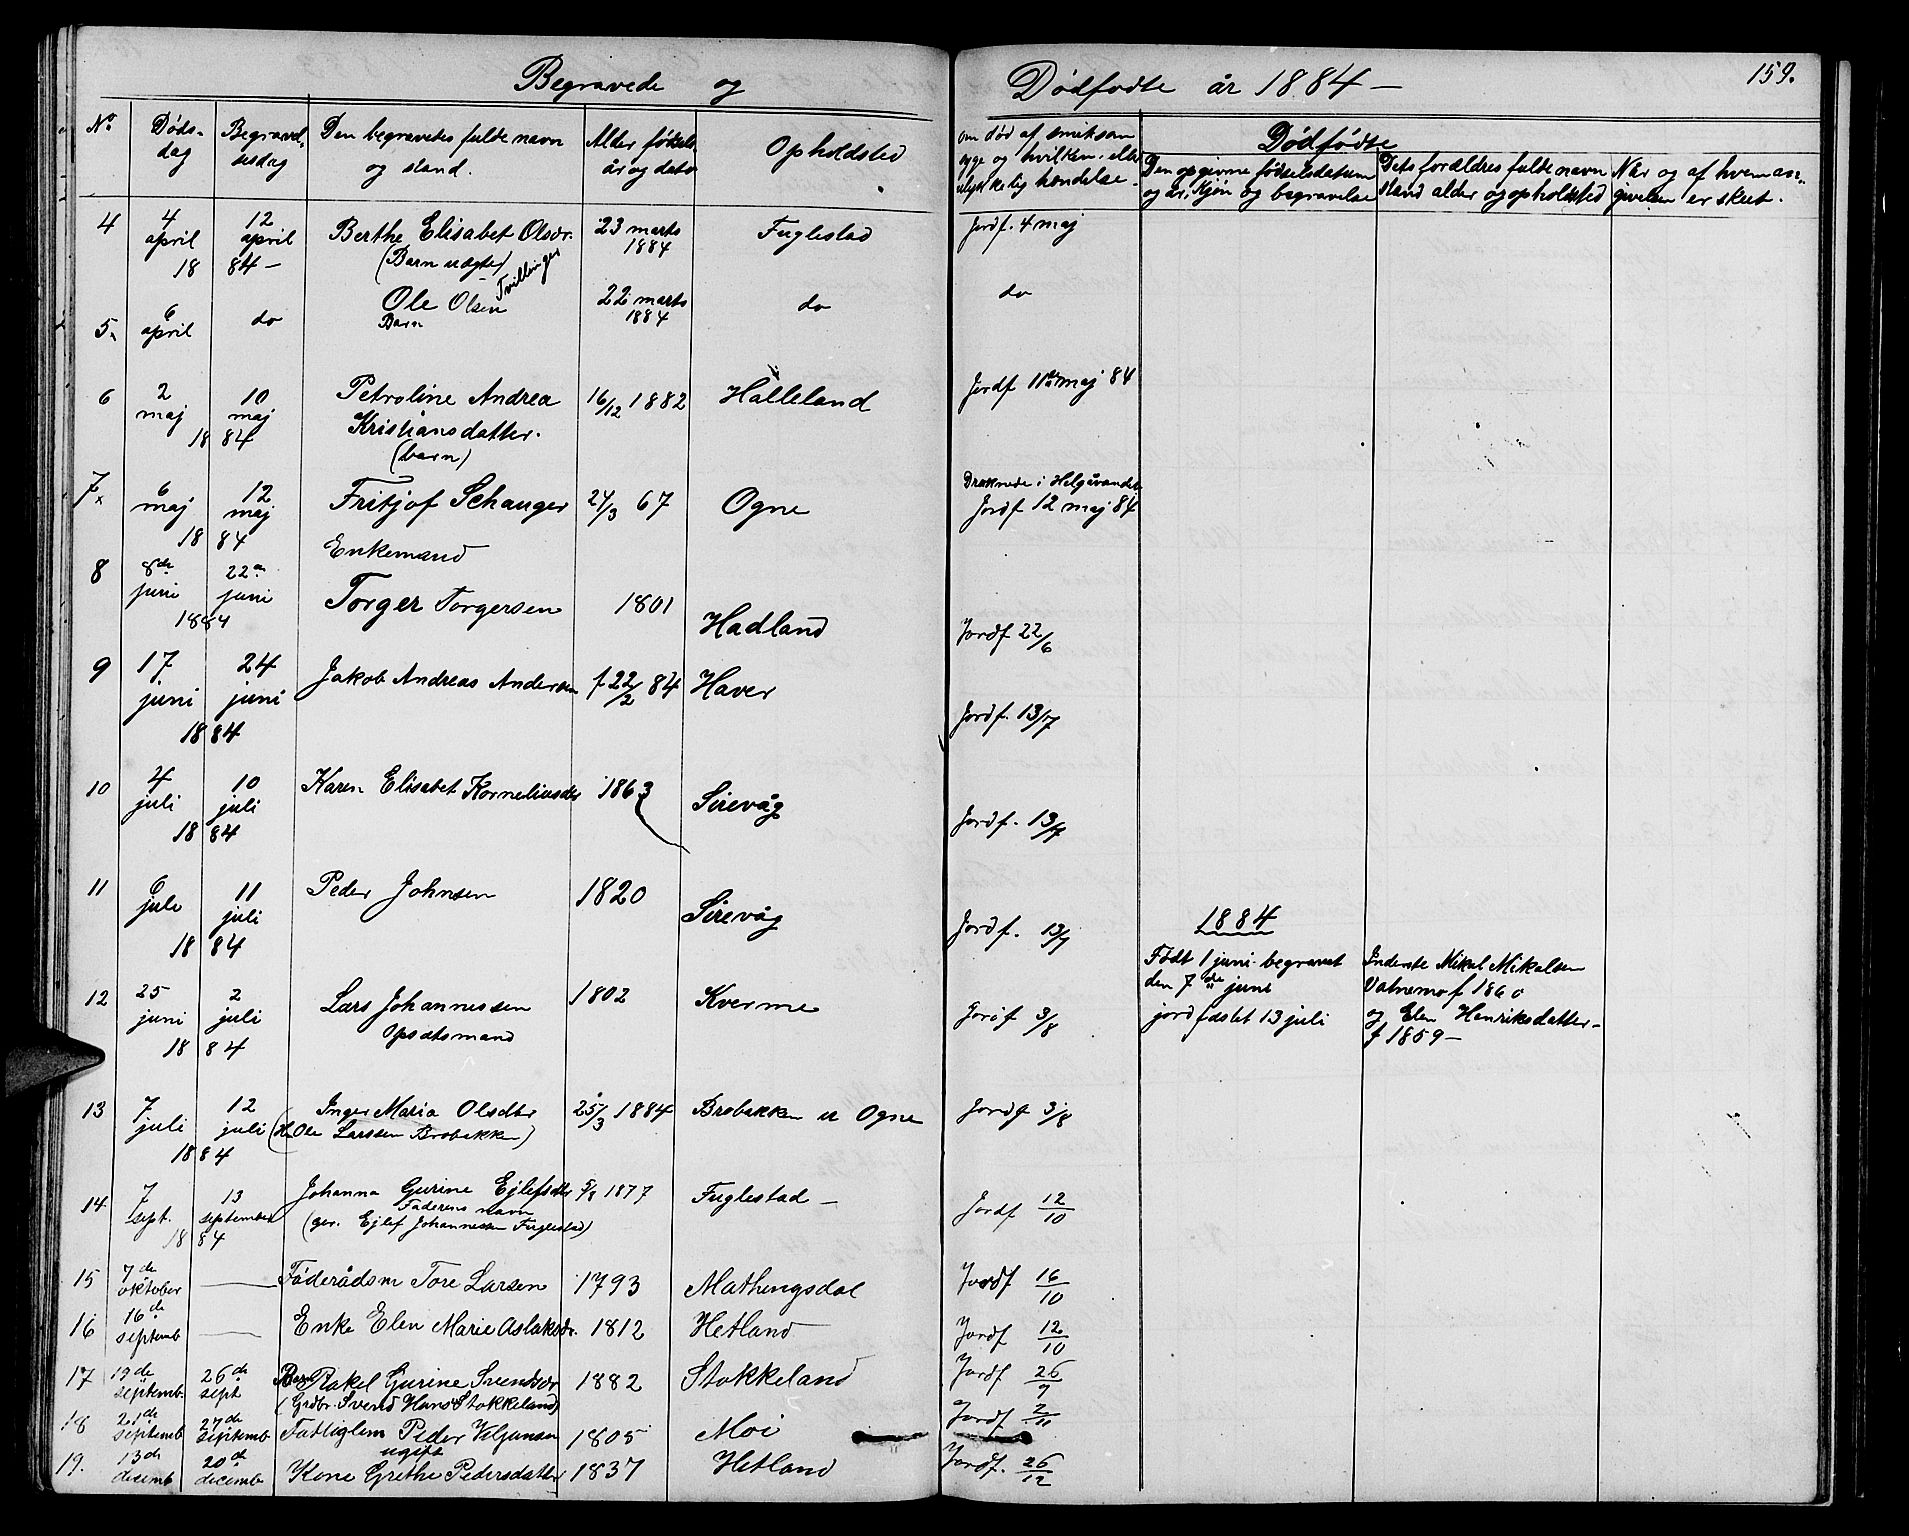 Begravede og Dødfødte år 1884 — 159.
No Døds-dag Begravelsesdag Den begravedes fulde navn og stand. Alder fødsels år og dato Opholdsted om død af smitsom syge og hvilken eller ulykkelig hændelse Dødfødte
Den opgivne fødselsdatum og år, kjøn og begravelse Dets forældres fulde navn stand alder og opholdsted Når og af hvem angivelsen er skeet.
4 4 april 12 april 1884 — Berthe Elisabet Olsdr. (Barn uægte) Tvillinger 23 marts 1884 Fuglestad Jordf. 4 maj
5 6 april do Ole Olsen Barn 22 marts 1884 do do
6 2 maj 10 maj 1884 Petroline Andrea Kristiansdatter. (barn) 16/12 1882 Hålleland Jordf 11te maj 84
7 6 maj 12 maj 1884 Fritjof Schanger 24/3 67 Ogne Druknede i Helgåvandet Jordf 12 maj 84
8 8de juni 22de juni 1884 Enkemand Torger Torgersen 1801 Hadland Jordf 22/6
9 17 juni 24 juni 1884 Jakob Andreas Andersen f 22/2 84 Haver Jordf. 13/7
10 4 juli 10 juli 1884 Karen Elisabet Korneliusdtr 1863 Sirevåg Jordf. 13/7
11 6 juli 11 juli 1884 Peder Johnsen 1820 Sirevåg Jordf. 13/7
1884
Født 1 juni begravet den 7de juni jordfæstet 13 juli Inderste Mikal Mikalsen Vatnemo f 1860 og Elen Henriksdatter — f 1859 —
12 25 juni 2 juli 1884 Lars Johannessen Opsdtsmand 1802 Kverme Jordf 3/8
13 7 juli 12 juli 1884 Inger Maria Olsdtr (Ole Larssen Brobakken) 25/3 1884 Brobakken Ogne Jordf 3/8
14 7 sept. 13 september 1884 Johanna Gurine Ejlefsdtr Faderens navn (gsr. Ejlef Johannessen Fuglestad) 5/8 1877 Fuglestad — Jordf 12/10
15 7de oktober — Føderådsm Tore Larsen 1793 Mathingsdal Jordf 16/10
16 16de septemb — Enke Elen Marie Aslaksdr. 1812 Hetland Jordf 12/10
17 19de septemb. 26de sept Barn Rakel Gurine Svendsdr (Grdbr. Svend Hans Stokkeland) 1882 Stokkeland Jordf 26/9
18 21de septemb 27de septemb Fattiglem Peder Veljansen ugift 1805 Moi Jordf 2/11
19. 13de desemb 20de decemb Kone Grethe Pedersdatter 1837 Hetland Jordf. 26/12